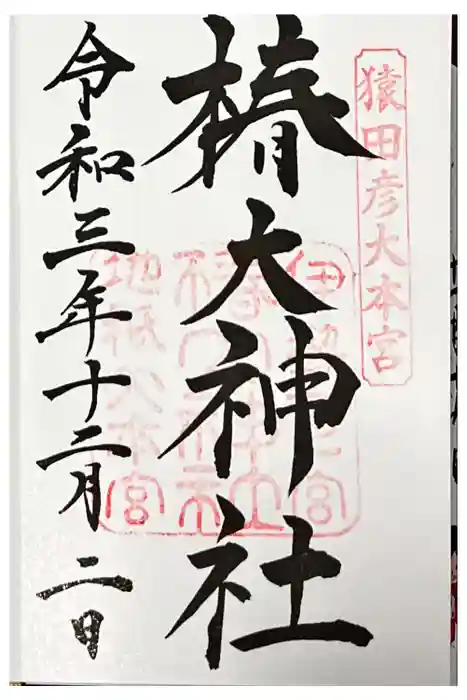 猿田彦大本宮
椿大神社
令和三年十二月二日